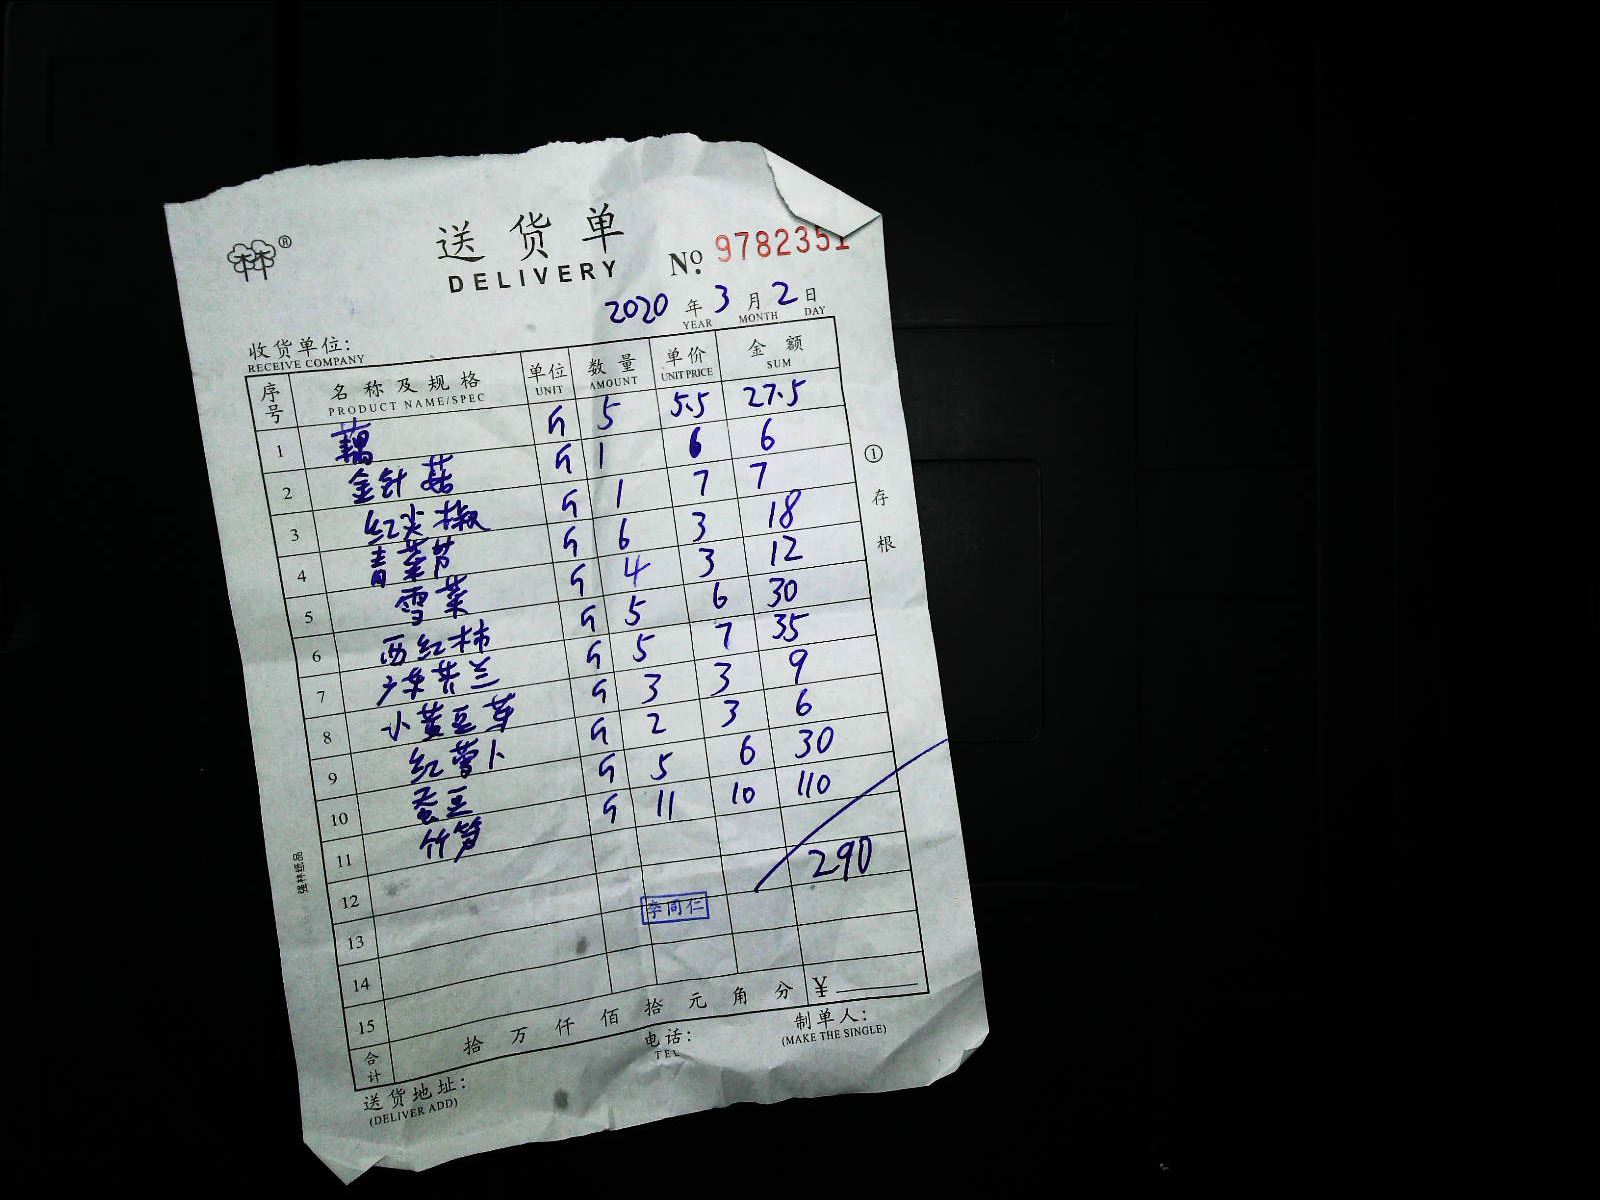 林林®
送货单
DELIVERY
№ 9782351
2020 年 3 月 2 日
YEAR MONTH DAY
收货单位:
RECEIVE COMPANY
序号 名称及规格 单位 数量 单价 金额
PRODUCT NAME/SPEC UNIT AMOUNT UNIT PRICE SUM
1 藕 斤 5 5.5 27.5
2 金针菇 斤 1 6 6
3 红尖椒 斤 1 7 7
4 青菜苔 斤 6 3 18
5 雪菜 斤 4 3 12
6 西红柿 斤 5 6 30
7 广东芥兰 斤 5 7 35
8 小黄豆芽 斤 3 3 9
9 红萝卜 斤 2 3 6
10 蚕豆 斤 5 6 30
11 竹笋 斤 11 10 110
12 290
13 李同仁
14
15
合计 拾 万 仟 佰 拾 元 角 分 ¥
送货地址:
(DELIVER ADD)
电话:
TEL
制单人:
(MAKE THE SINGLE)
①存根
强林纸品